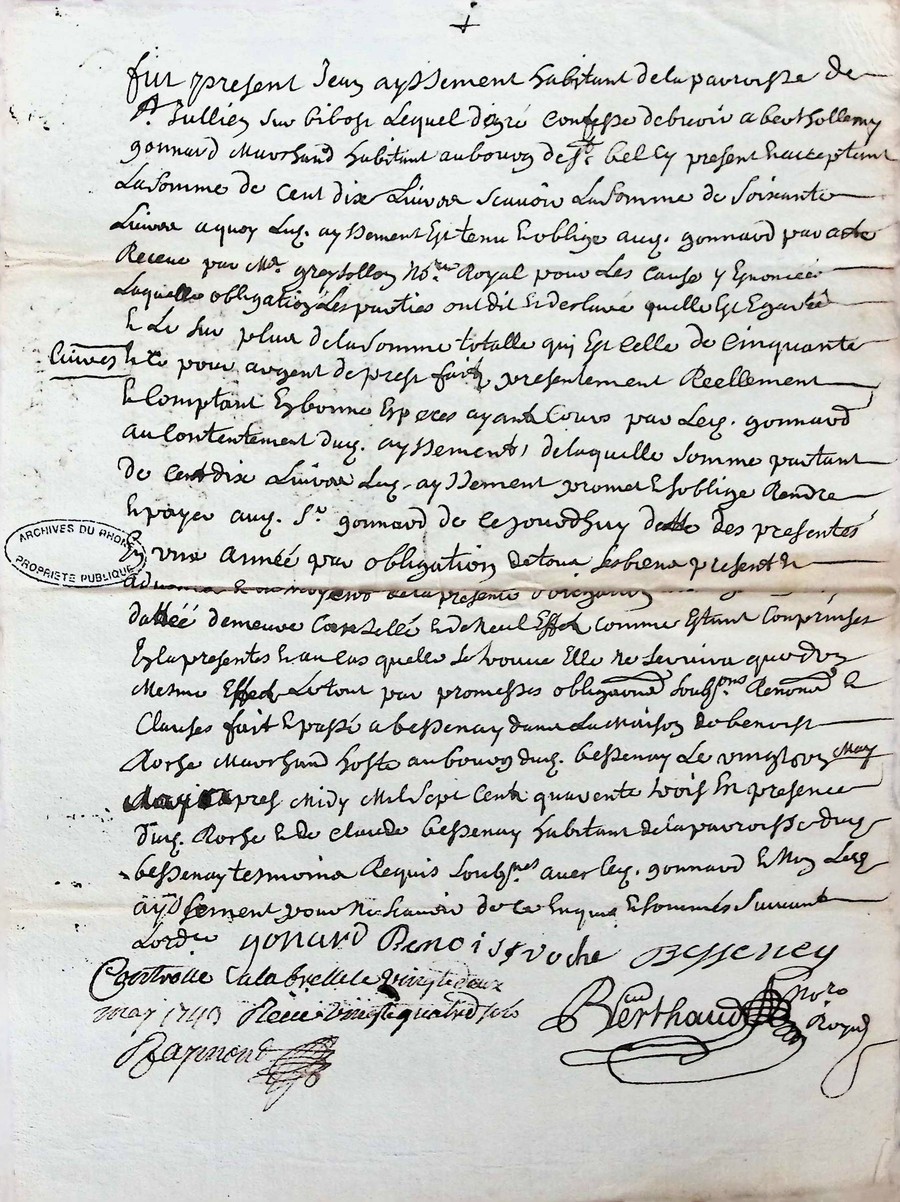 +
fut present Jean ayssement habitant de la parroisse de
St Jullien sur bibost Lequel de gré confesse debvoir a berthollemy
gonnard Marchand habitant au bourg de St bel Cy present & acceptant
La Somme de Cent dix Livres scavoir La Somme de Soixante
Livres a quoy Led. ayssement Est tenu & oblige aud. gonnard par acte
Receu par Me greysollon Nore Royal pour Les Cause y Enoncée
Laquelle obligation Les parties ont dit & declaré quelle Est Egarée
& Le sur plus de la Somme totalle qui Est Celle de Cinquante
Livres
& Ce pour argent de prest fait presentement Reellement
& Comptant En bonne Especes ayant Cours par Led. gonnard
au Contentement dud. ayssement, de laquelle Somme partant
de Cent dix Livres Led. ayssement promet & soblige Rendre
& payer aud. Sr. gonnard de Ce jourdhuy datte des presentes
En une Année par obligation de tous Ses biens present &
de la presente obligation
dattéé demeure Cancellé & de Neul Effect Comme Estant Comprinses
En la presentes & au Cas quelle Se trouve Elle Ne Servira que dun
Mesme Effect Le tout par promesses obligaons Soubmons Renons &
Clauses fait & passé a bessenay dans La Maison de benoist
Roche Marchand hoste au bourg dud. bessenay Le vingt un May
apres Midy Mil Sept Cent quarente trois En presence
dud. Roche & de Claude bessenay habitant de la parroisse dud
bessenay tesmoins Requis Soubnes avec Led. gonnard & Non Led
ayssement pour Ne Scavoir de Ce Enquis & Sommés Suivant
Lordce gonard Benoist roche Besseney
Controlle a Labrelle le vingt deux
may 1743 Receu vingt quatre sols
Raymond
Berthaud Nore
Royal
ARCHIVES DU RHONE
PROPRIETE PUBLIQUE